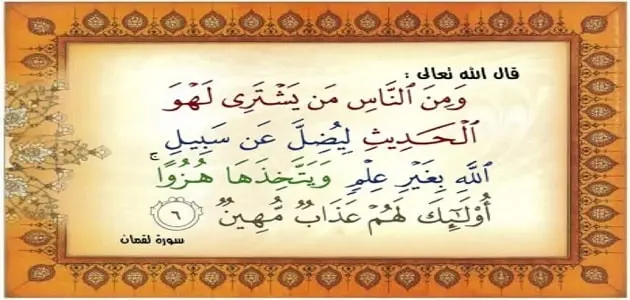 قال الله تعالى :
وَمِنَ ٱلنَّاسِ مَن يَشْتَرِى لَهْوَ
ٱلْحَدِيثِ لِيُضِلَّ عَن سَبِيلِ
ٱللَّهِ بِغَيْرِ عِلْمٍ وَيَتَّخِذَهَا هُزُوًا ۚ
أُو۟لَٰٓئِكَ لَهُمْ عَذَابٌ مُّهِينٌ ٦
سورة لقمان